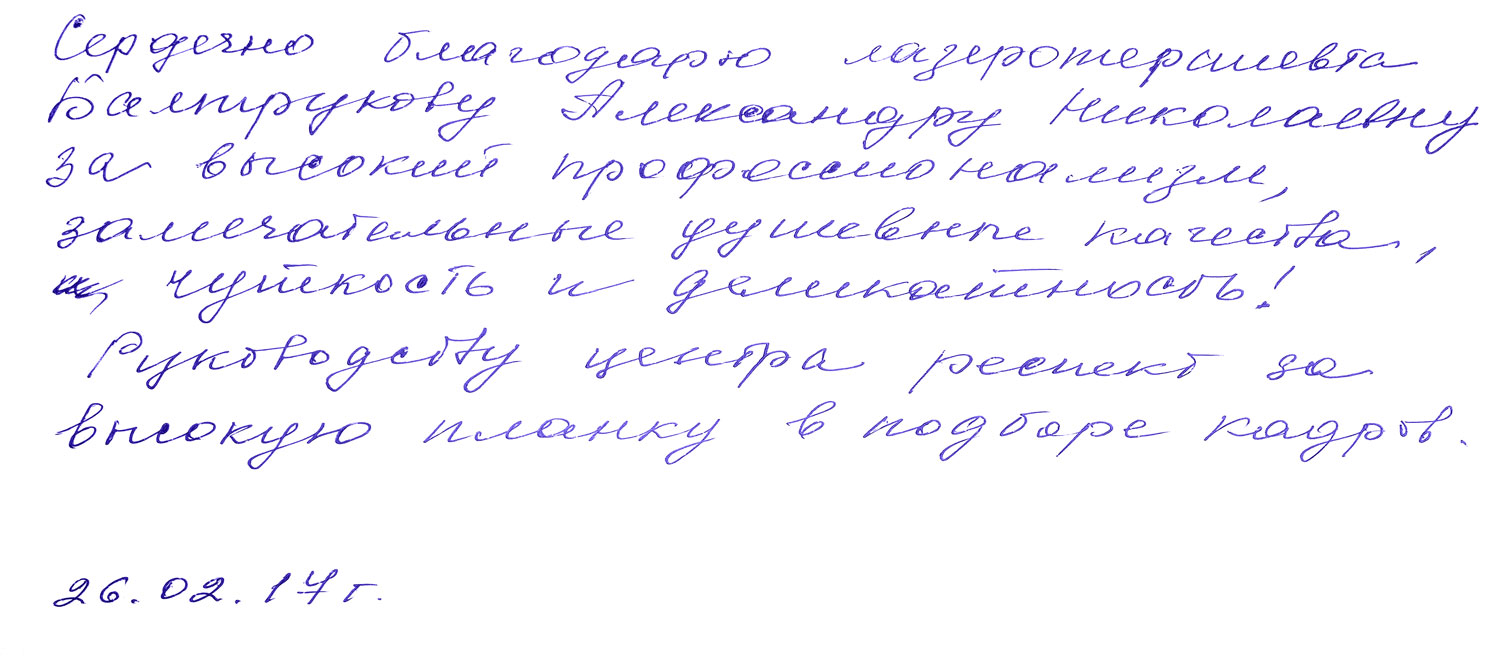 Сердечно благодарю лазеротерапевта
Александру Николаевну
за высокий профессионализм,
замечательные душевные качества,
чуткость и деликатность!
Руководству центра респект за
высокую планку в подборе кадров.
26.02.17 г.